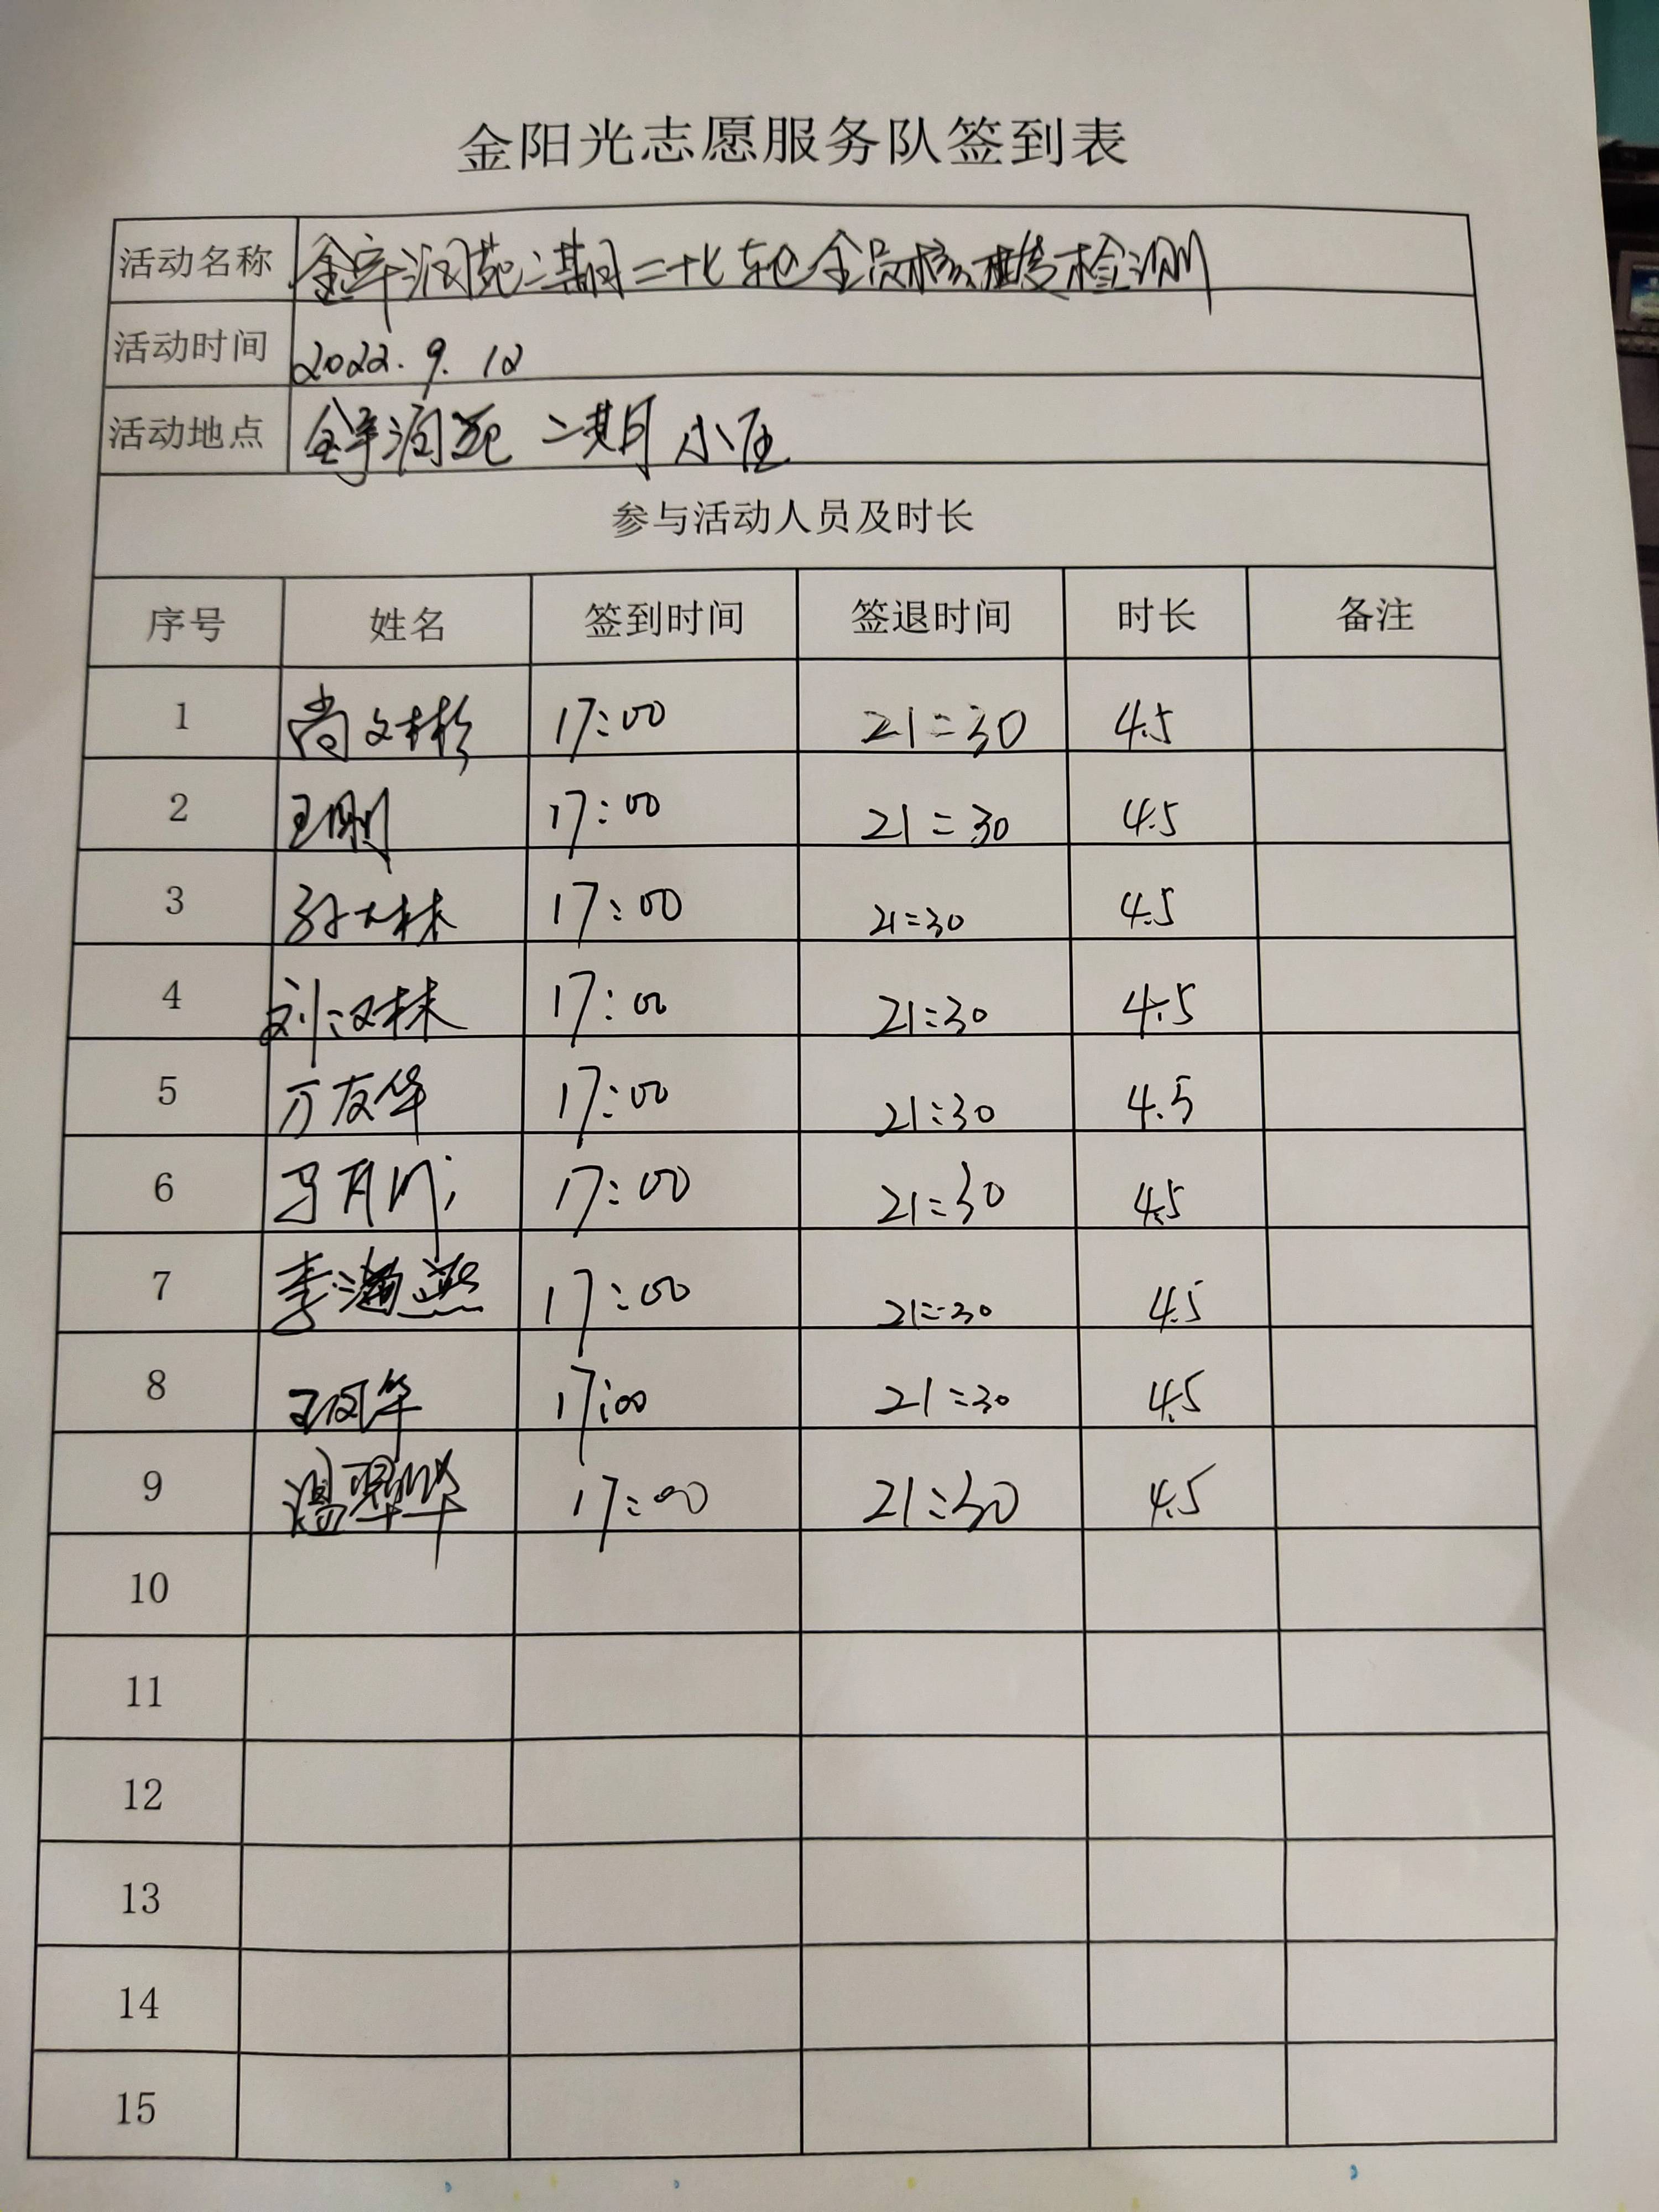 金阳光志愿服务队签到表
活动名称 金辛润苑二期二十七轮全员核酸检测
活动时间 2022.9.12
活动地点 金辛润苑二期小区
参与活动人员及时长
序号 姓名 签到时间 签退时间 时长 备注
1 尚文彬 17:00 21:30 4.5
2 王刚 17:00 21:30 4.5
3 孙大林 17:00 21:30 4.5
4 刘汉林 17:00 21:30 4.5
5 万友华 17:00 21:30 4.5
6 17:00 21:30 4.5
7 李满燕 17:00 21:30 4.5
8 17:00 21:30 4.5
9 温翠华 17:00 21:30 4.5
10
11
12
13
14
15